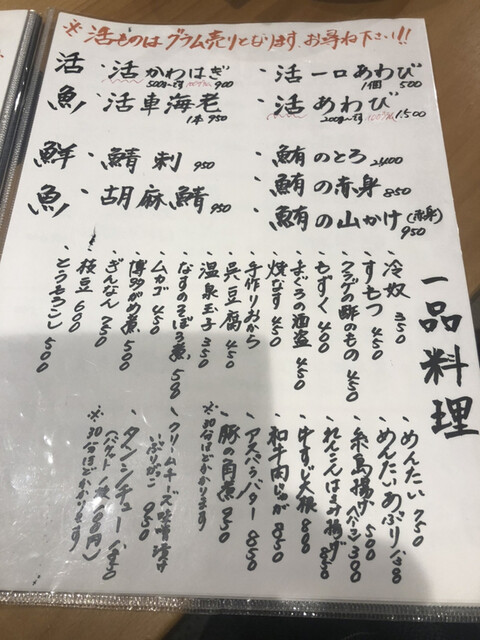 ※活ものはグラム売りとなります、お尋ね下さい!!
活魚
・活かわはぎ
500g〜です 100g 900
・活車海老
1本950
・活一口あわび
1個 500
・活あわび
200g〜です 100g 1,500
鮮魚
・鯖刺 950
・胡麻鯖 950
・鮪のとろ 2400
・鮪の赤身 850
・鮪の山かけ(赤身)
950
一品料理
・冷奴 350
・すもつ 450
・クラゲの酢のもの 450
・もずく 400
・まぐろの酒盗 450
・焼なす 450
・手作りおから
・呉豆腐 450
・温泉玉子 350
・なすのそぼろ煮 500
・ムカゴ 450
・博多がめ煮 500
・ぎんなん 750
・枝豆 600
・とうもろこし 500
・めんたい 750
・めんたいあぶり
・糸島揚げ 500
・れんこんはさみ揚げ 850
・牛すじ大根 800
・和牛肉じゃが 850
・アスパラバター 850
・豚の角煮 950
※30分ほどかかります
・クリームチーズ味噌漬け
いぶりがっこ 950
・タンシチュー
(バゲット
※30分ほどかかります